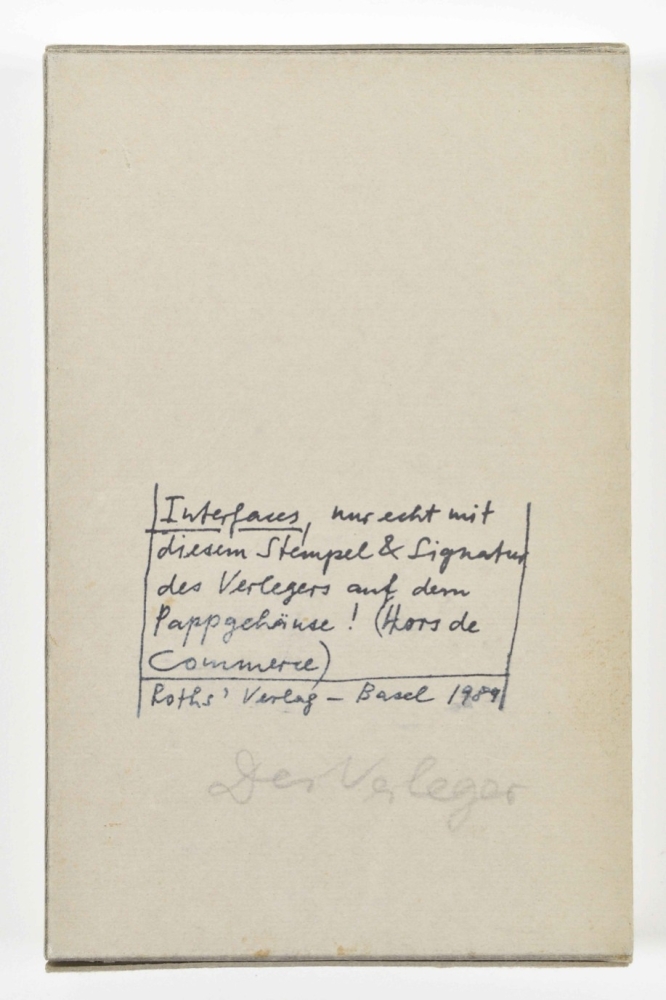 Interfaces, nur echt mit
diesem Stempel & Signatur
des Verlegers auf dem
Pappgehäuse! (Hors de
Commerce)
Roths' Verlag – Basel 1989
Der Verleger